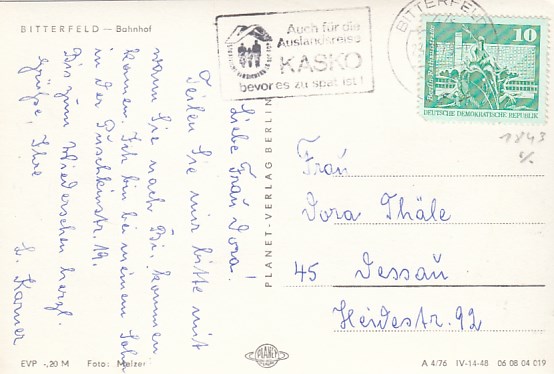 BITTERFELD — Bahnhof
Auch für die
Auslandsreise
KASKO
bevor es zu spät ist!
BITTERFELD
10
Berlin, Rathausstraße
DEUTSCHE DEMOKRATISCHE REPUBLIK
1843
Liebe Frau Dora!
Teilen Sie mir bitte mit
wann Sie nach Bi. kommen
können. Ich bin bei meinem Sohn
in der Puschkinstr. 19.
Bis zum Wiedersehen herzl.
Grüße, Ihre
L. Karner
PLANET-VERLAG BERLIN
Frau
Dora Thäle
45 Dessau
Heidestr. 92
EVP -,20 M Foto: Melzer
PLANET
A 4/76 IV-14-48 06 08 04 019